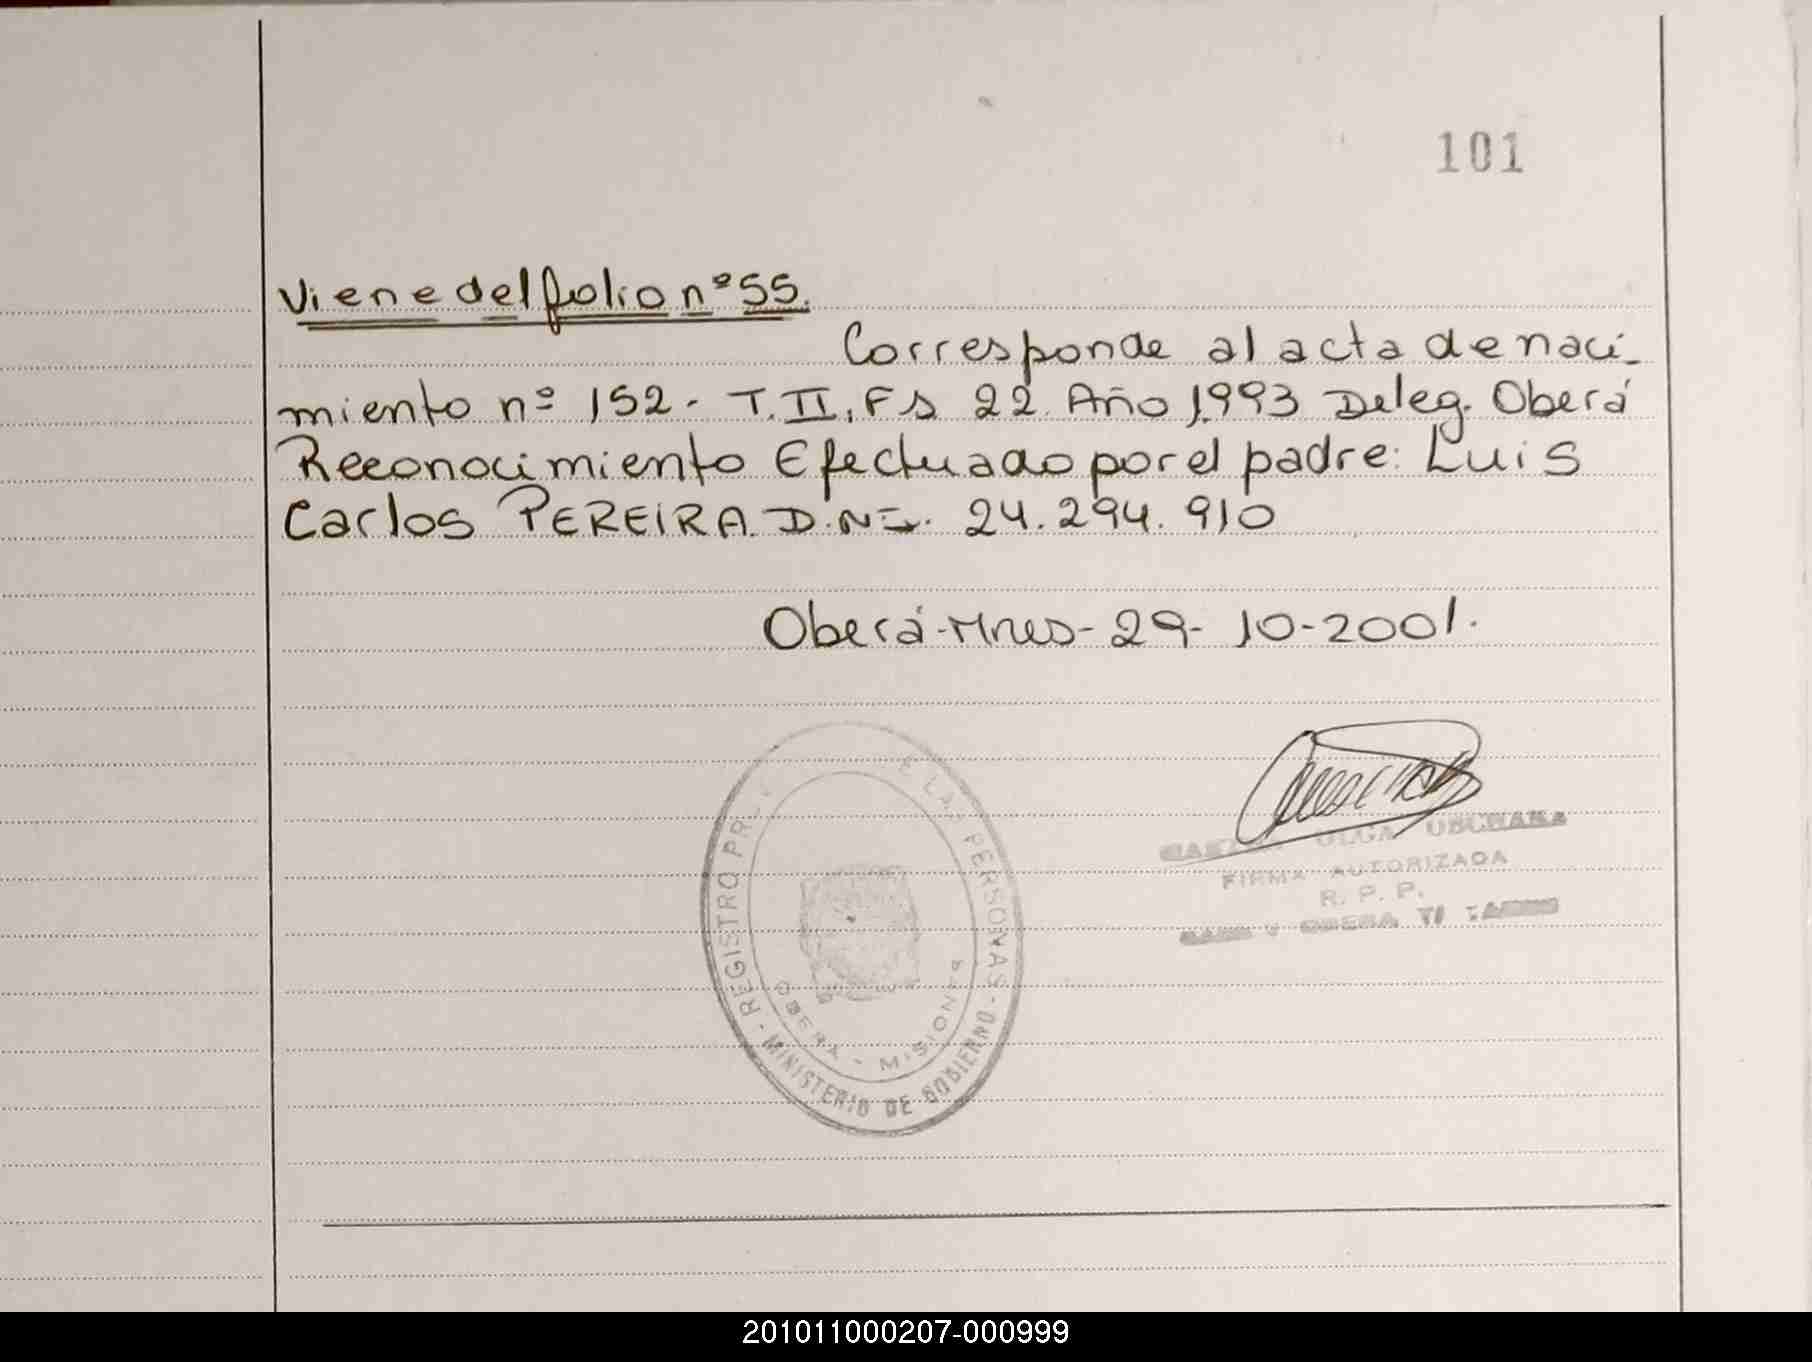 101
Viene del folio nº 55.
Corresponde al acta de naci-
miento nº 152- T.II, Fs 22 Año 1993 Deleg. Oberá
Reconocimiento Efectuado por el padre: Luis
Carlos PEREIRA. D.N.I. 24.294.910
Oberá-Mnes-29-10-2001.
REGISTRO E LAS PERSONAS
OBERA - MISIONES
MINISTERIO DE GOBIERNO
OLGA
FIRMA AUTORIZADA
R. P. P.
OBERA
201011000207-000999